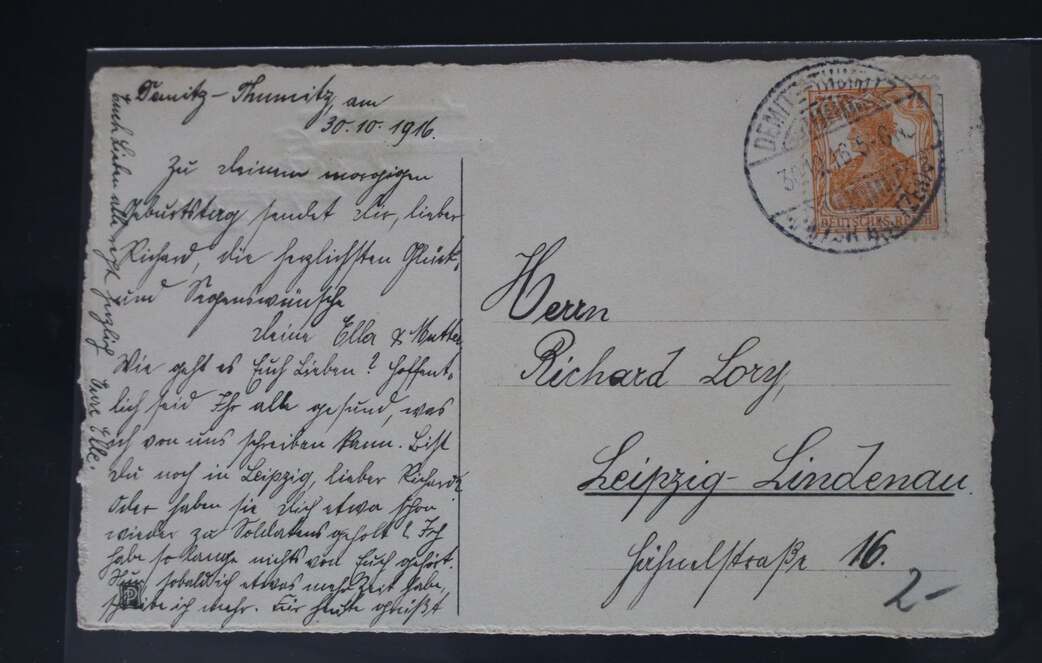 Demitz-Thumitz, am
30.10.1916.
Zu Deinem morgigen
Geburtstag sendet dir, lieber
Richard, die herzlichsten Glück-
und Segenswünsche
Deine Ella & Mutter.
Wie geht es Euch Lieben? Hoffent-
lich seid Ihr alle gesund, was
ich von uns schreiben kann. Bist
Du noch in Leipzig, lieber Richard?
Oder haben sie Dich etwa schon
wieder zu Soldatens geholt? Ich
habe so lange nichts von Euch gehört.
Nun, sobald ich etwas mehr Zeit habe,
schreibe ich mehr. Für heute grüßt
Euch Lieben alle recht herzlich Eure Elle.
DEMITZ-THUMITZ
DEUTSCHES R
7½
Herrn
Richard Lory,
Leipzig-Lindenau.
Hähnelstraße 16.
2-
P